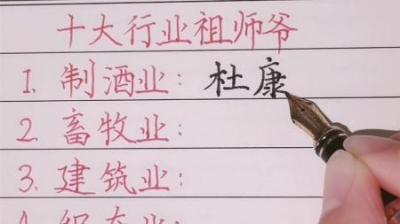 十大行业祖师爷
1. 制酒业：杜康
2. 畜牧业：
3. 建筑业：